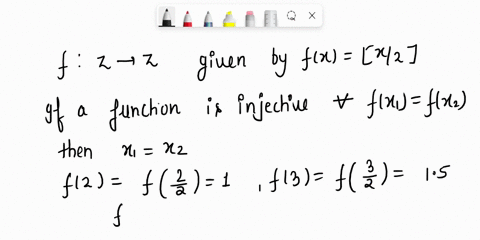 f : z → z given by f(x) = [x/2]
gf a function is injective ∀ f(x₁) = f(x₂)
then x₁ = x₂
f(2) = f(2/2) = 1 , f(3) = f(3/2) = 1.5
f